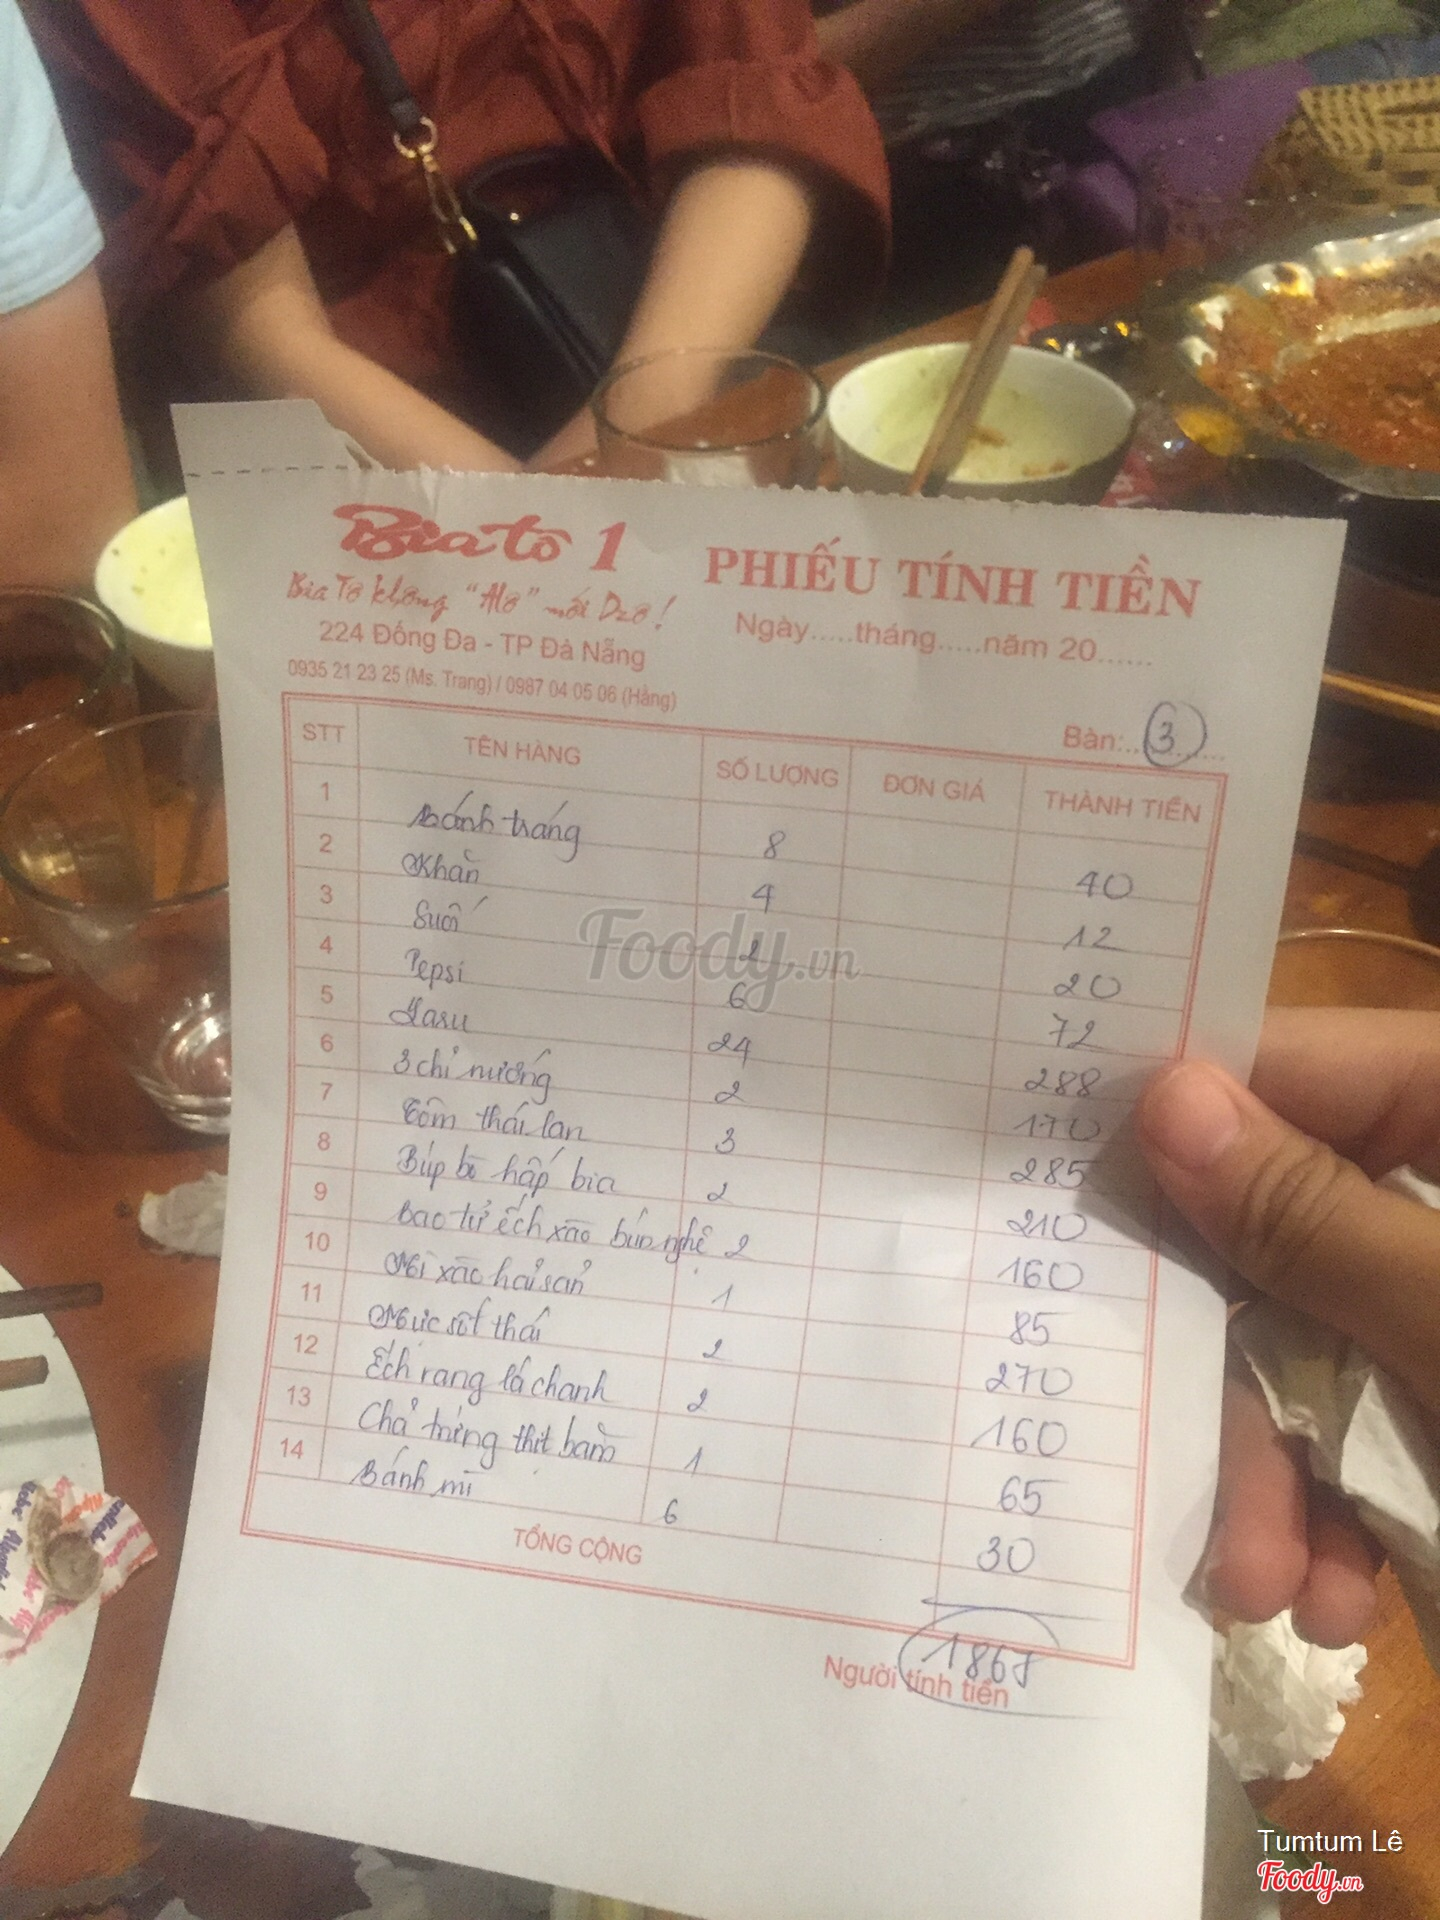 Bia tô 1
Bia Tô không "Alo" mới Dzô!
224 Đống Đa - TP Đà Nẵng
0935 21 23 25 (Ms. Trang) / 0987 04 05 06 (Hằng)
PHIẾU TÍNH TIỀN
Ngày.....tháng.....năm 20......
Bàn:..3......
STT TÊN HÀNG SỐ LƯỢNG ĐƠN GIÁ THÀNH TIỀN
1 Bánh tráng 8 40
2 Khăn 4 12
3 Suối 2 20
4 Pepsi 6 72
5 Laru 24 288
6 3 chỉ nướng 2 170
7 Tôm thái lan 3 285
8 Búp bò hấp bia 2 210
9 Bao tử ếch xào bún nghệ 2 160
10 Mì xào hải sản 1 85
11 Mực sốt thái 2 270
12 Ếch rang lá chanh 2 160
13 Chả trứng thịt bằm 1 65
14 Bánh mì 6 30
TỔNG CỘNG
1867
Người tính tiền
Foody.vn
Tumtum Lê
Foody.vn